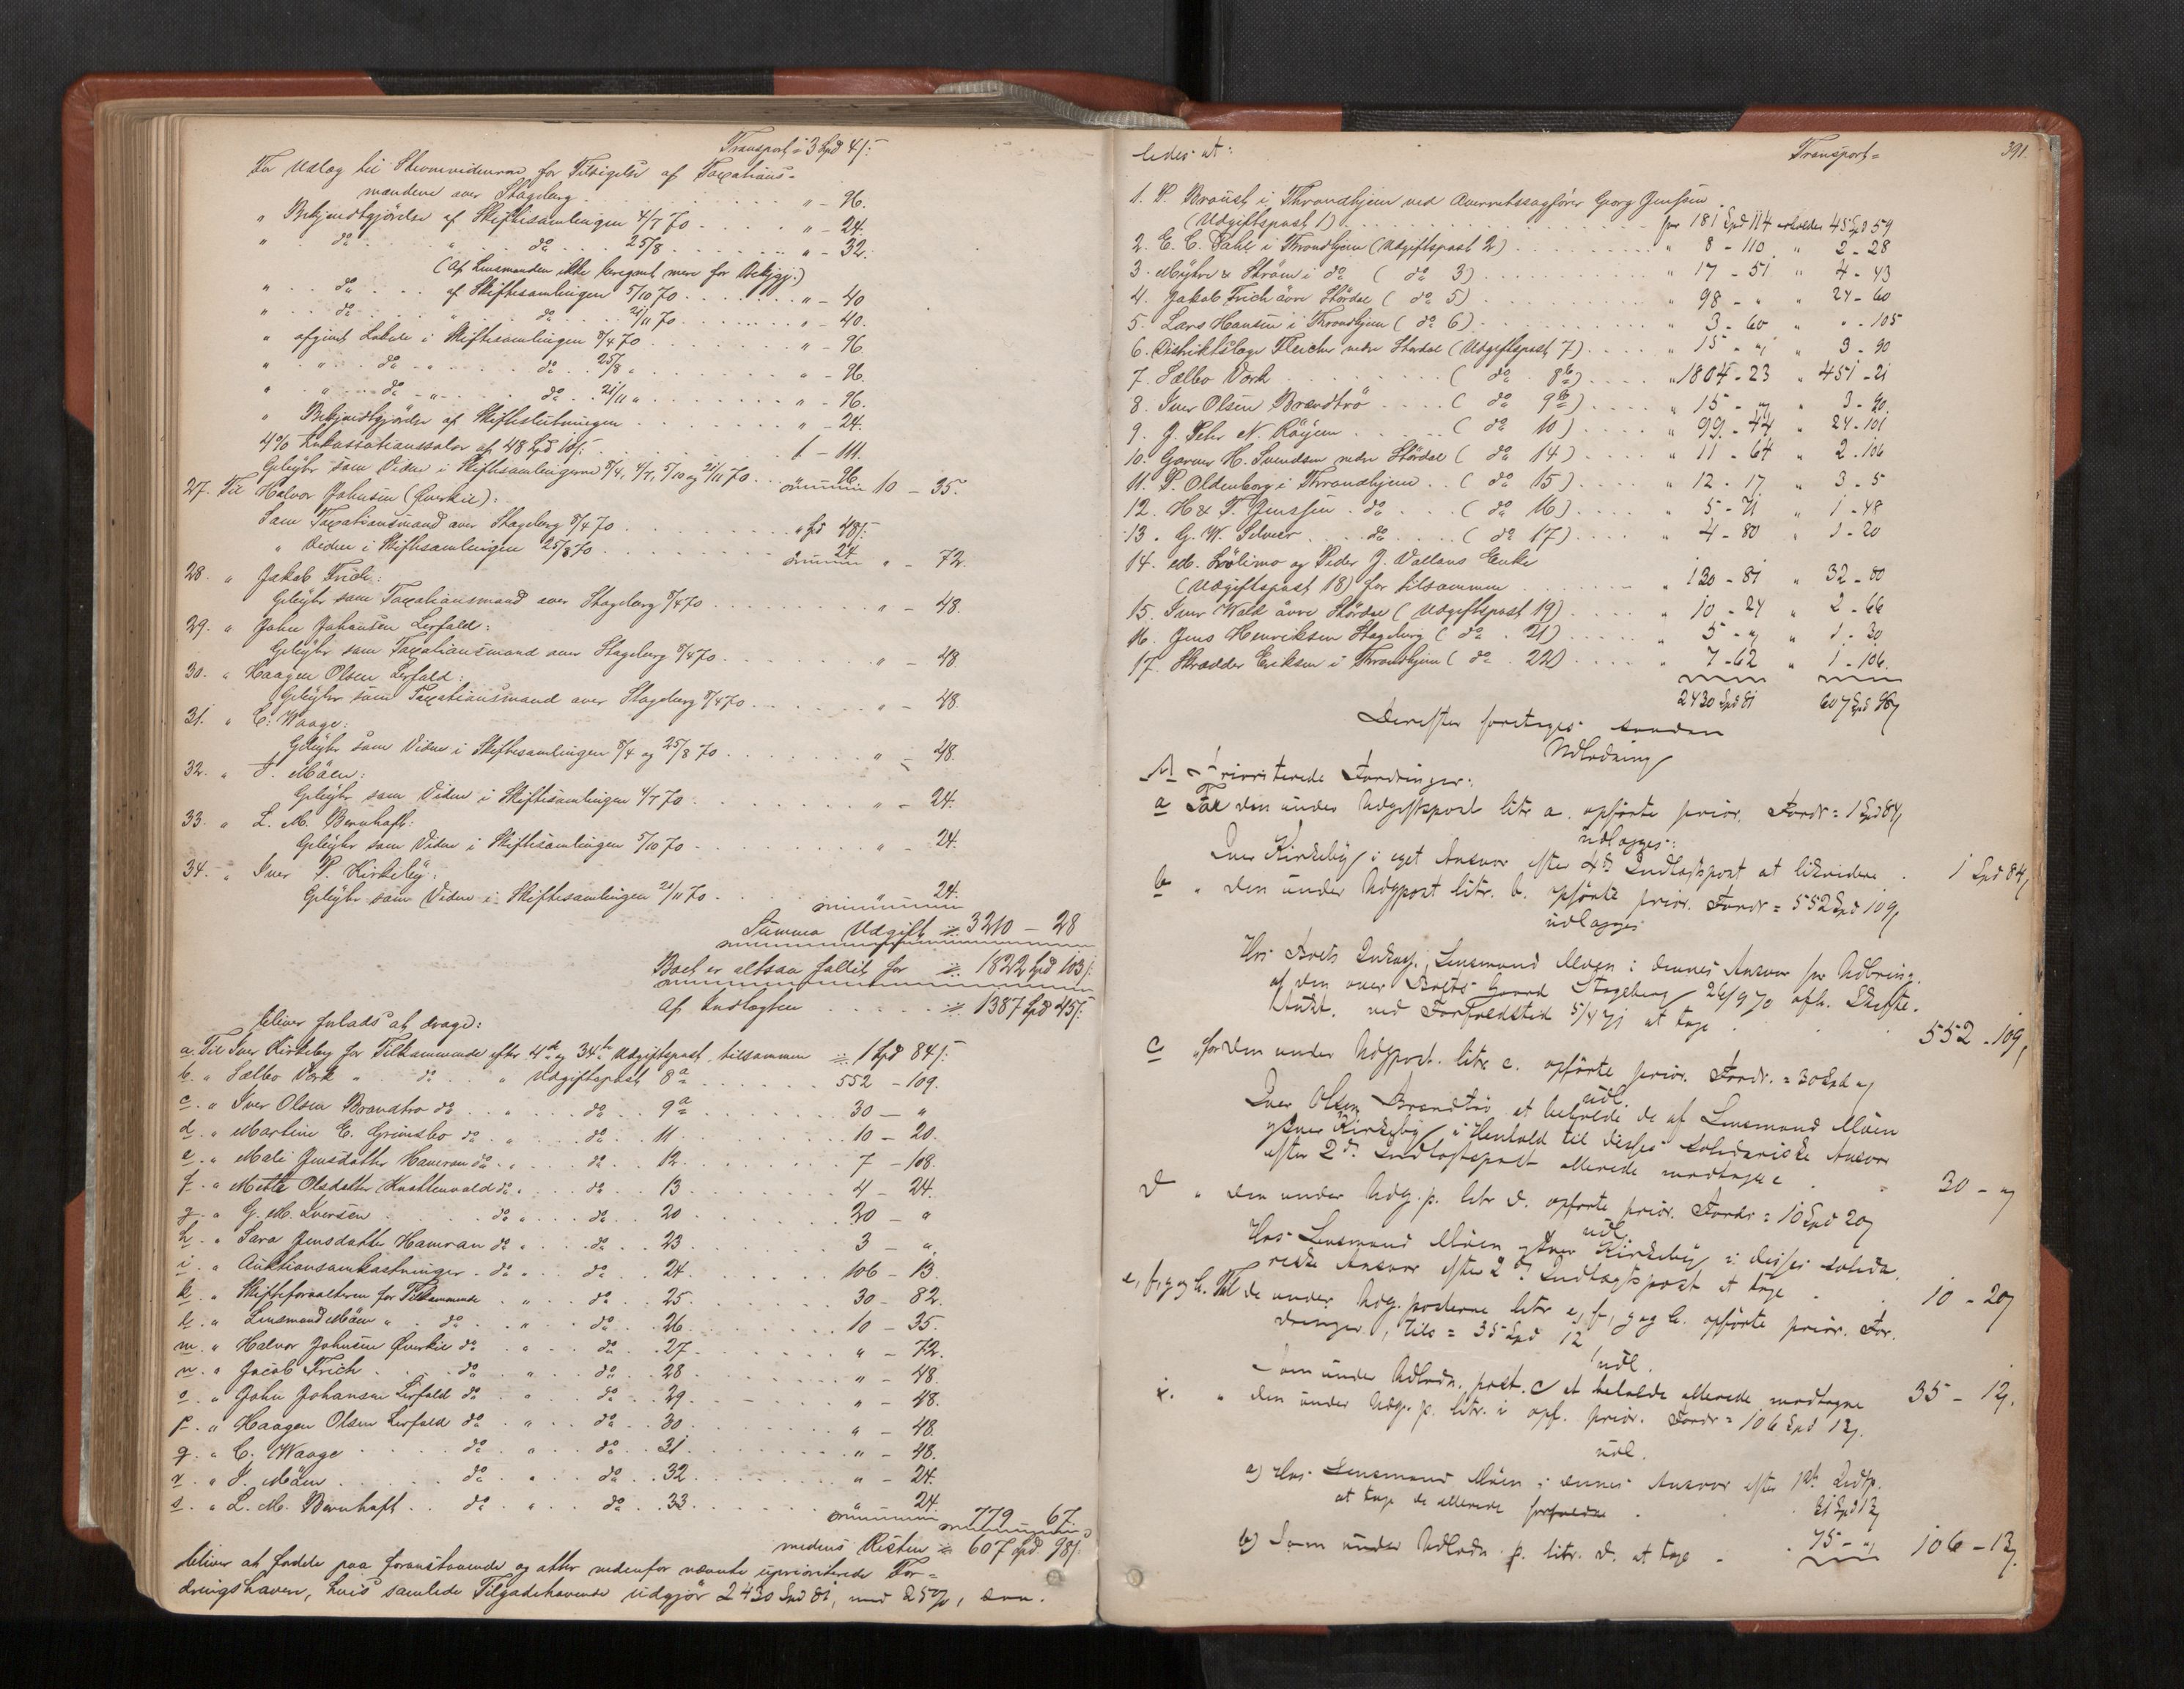 Transport = 3 Spd 4/:
For Udlæg til Stevnevidnerne for Tilsigelse af Taxations-
mændene over Stageberg . . . " - 96.
" Bekjendtgjørelse af Skiftesamlingen 4/7 70 . . . " - 24.
" do " do 25/8 . . . " - 32.
(Af Lensmanden ikke beregnet mere for Bekjgj.)
" do af Skiftesamlingen 5/10 70 . . . " - 40
" do " do 21/11 70 . . . " - 40.
" afgivet Lokale i Skiftesamlingen 8/4 70 . . . " - 96
" " do " do 25/8 " . . . " - 96.
" " do " do 21/11 " . . . " - 96.
" Bekjendtgjørelse af Skifteslutningen . . . " - 24.
4% Inkassationssalær af 48 Spd 10/: . . . 1 - 111.
Gebyhr som Vidne i Skiftesamlingerne 8/4, 4/7, 5/10 og 21/11 70 . . . 96. 10 - 35.
27. Til Halvor Johnsen (Øverkil):
Som Taxationsmand over Stageberg 8/4 70 . . . " Spd 48/:
" Vidne i Skiftesamlingen 25/8 70 . . . 24 " - 72.
28. " Jakob Frich:
Gebyhr som Taxationsmand over Stageberg 8/4 70 . . . " - 48.
29. " John Johansen Lerfald:
Gebyhr som Taxationsmand over Stageberg 8/4 70 . . . " - 48.
30. " Haagen Olsen Lerfald:
Gebyhr som Taxationsmand over Stageberg 8/4 70 . . . " - 48.
31. " C. Waage:
Gebyhr som Vidne i Skiftesamlingen 8/4 og 25/8 70 . . . " - 48.
32. " J. Måen:
Gebyhr som Vidne i Skiftesamlingen 4/7 70 . . . " - 24.
33. " L. M. Bernhoft:
Gebyhr som Vidne i Skiftesamlingen 5/10 70 . . . " - 24.
34. " Iver P. Kirkeby:
Gebyhr som Vidne i Skiftesamlingen 21/11 70 . . . " 24.
Summa Udgift 3210 - 28
Boet er altsaa fallit for 1822 Spd 103/:
Af Indtægten . . . 1387 Spd 45/:
bliver forlods at drage:
a. Til Iver Kirkeby for Tilkommende efter 4de og 34te Udgiftspost, tilsammen 1 Spd 84/:
b. " Sælbo Værk " do " Udgiftspost 8a . . . 552 - 109.
c. " Iver Olsen Brandtrø do " do 9a . . . 30 - "
d. " Martine E. Grimsbo do " do 11 . . . 10 - 20.
e. " Mali Jensdatter Hamran do " do 12 . . . 7 - 108.
f. " Mette Olsdatter Knottenvold do " do 13 . . . 4 - 24.
g. " G. M. Iversen do " do 20 . . . 20 - "
h. " Sara Jensdatter Hamran do " do 23 . . . 3 - "
i. " Auktionsomkostninger do " do 24 . . . 106 - 13.
k. " Skifteforvalteren for Tilkommende " do 25 . . . 30 - 82.
l. " Lensmand Måen " do " do 26 . . . 10 - 35.
m. " Halvor Johnsen Øverkil do " do 27 . . . " - 72.
n. " Jacob Frich do " do 28 . . . " - 48.
o. " John Johansen Lerfald do " do 29 . . . " - 48.
p. " Haagen Olsen Lerfald do " do 30 . . . " - 48.
q. " C. Waage do " do 31 . . . " - 48.
r. " J. Måen do " do 32 . . . " - 24.
s. " L. M. Bernhoft do " do 33 . . . " 24. 779 67.
medens Resten = 607 Spd. 98/:
bliver at fordele paa foranstaaende og atter nedenfor nævnte uprioriterede For-
dringshavere, hvis samlede Tilgodehavende udgjør 2430 Spd 81, med 25%, saa-
ledes at: Transport = 391.
1. P. Brøust i Throndhjem ved Overretssagfører Georg Jenssen
(Udgiftspost 1) . . . for 181 Spd 114 erholder 45 Spd 59
2. E. C. Dahl i Throndhjem (Udgiftspost 2) . . . " 8 - 110 " 2 - 28
3. Myhre & Strøm i do ( do 3) . . . " 17 - 51 " 4 - 43
4. Jakob Frich øvre Størdal ( do 5) . . . " 98 - " " 24 - 60
5. Lars Hansen i Throndhjem ( do 6) . . . " 3 - 60 " " - 105
6. Distriktslæge Fleicher nedre Størdal (Udgiftspost 7) . . . " 15 - " " 3 - 90
7. Sælbo Værk . . . ( do 8b) . . . " 1804 - 23 " 451 - 21
8. Iver Olsen Brandtrø . . . ( do 9b) . . . " 15 - " " 3 - 90.
9. J. Peter N. Røyem . . . ( do 10) . . . " 99 - 44 " 24 - 101
10. Garver H. Svendsen nedre Størdal ( do 14) . . . " 11 - 64 " 2 - 106
11. P. Oldenborg i Throndhjem . . ( do 15) . . . " 12 - 17 " 3 - 5
12. H & F. Jenssen . do . . ( do 16) . . . " 5 - 71 " 1 - 48
13. G. W. Selmer . . do . . ( do 17) . . . " 4 - 80 " 1 - 20
14. M. og Peder J. Vollans Enke
(Udgiftspost 18) for tilsammen . . . " 130 - 81 " 32 - 80
15. Iver Wold øvre Størdal (Udgiftspost 19) . . . " 10 - 24 " 2 - 66
16. Jens Henriksen Stageberg ( do . 21) . . . " 5 - " " 1 - 30
17. Skrædder Eriksen i Throndhjem ( do . 22) . . . " 7 - 62 " 1 - 106.
2430 Spd 81 607 Spd 98/
Derefter foretages saadan
Udlodning
A Prioriterede Fordringer:
a For den under Udgiftspost litr a. opførte prior. Fordr = 1 Spd 84/
udlægges:
Iver Kirkeby i eget Ansvar efter 4de Indtægtspost at likvidere . 1 Spd 84/
b " den under Udgpost litr. b. opførte prior. Fordr = 552 Spd 109/
udlægges
Hos Boets Inkass., Lensmand Måen i dennes Ansvar for Udbring.
af den over Boets Gaard Stageberg 26/9 70 afh.
ved Forfaldstid 5/4 71 at tage . . . 552 - 109/
c " for den under Udgpost. litr c. opførte prior. Fordr. = 30 Spd "
udl.
Iver Olsen Brandtrø at beholde de af Lensmand Måen
og Iver Kirkeby i Henhold til disses solidariske Ansvar
efter 2den Indtægtspost allerede modtagne . . . 30 - "
d " den under Udg. p. litr d. opførte prior. Fordr = 10 Spd 20/
udl.
Hos Lensmand Måen og Iver Kirkeby i disses solida-
riske Ansvar efter 2den Indtægtspost at tage . . . 10 - 20/
e, f, g og h. Til de under Udg. posterne litr e, f, g og h. opførte prior. For-
dringer, tils = 35 Spd 12
udl.
Som under Udlodn. post. c at beholde allerede modtagne 35 - 12.
i. " den under Udg. p. litr. i opf. prior. Fordr = 106 Spd 13/
udl.
a) Hos Lensmand Måen i dennes Ansvar efter 1ste Indtp.
at tage de allerede forfaldne . . . 31 Spd 13/
b) Som under Udlodn. p. litr. d. at tage . . . 75 - " 106 - 13/